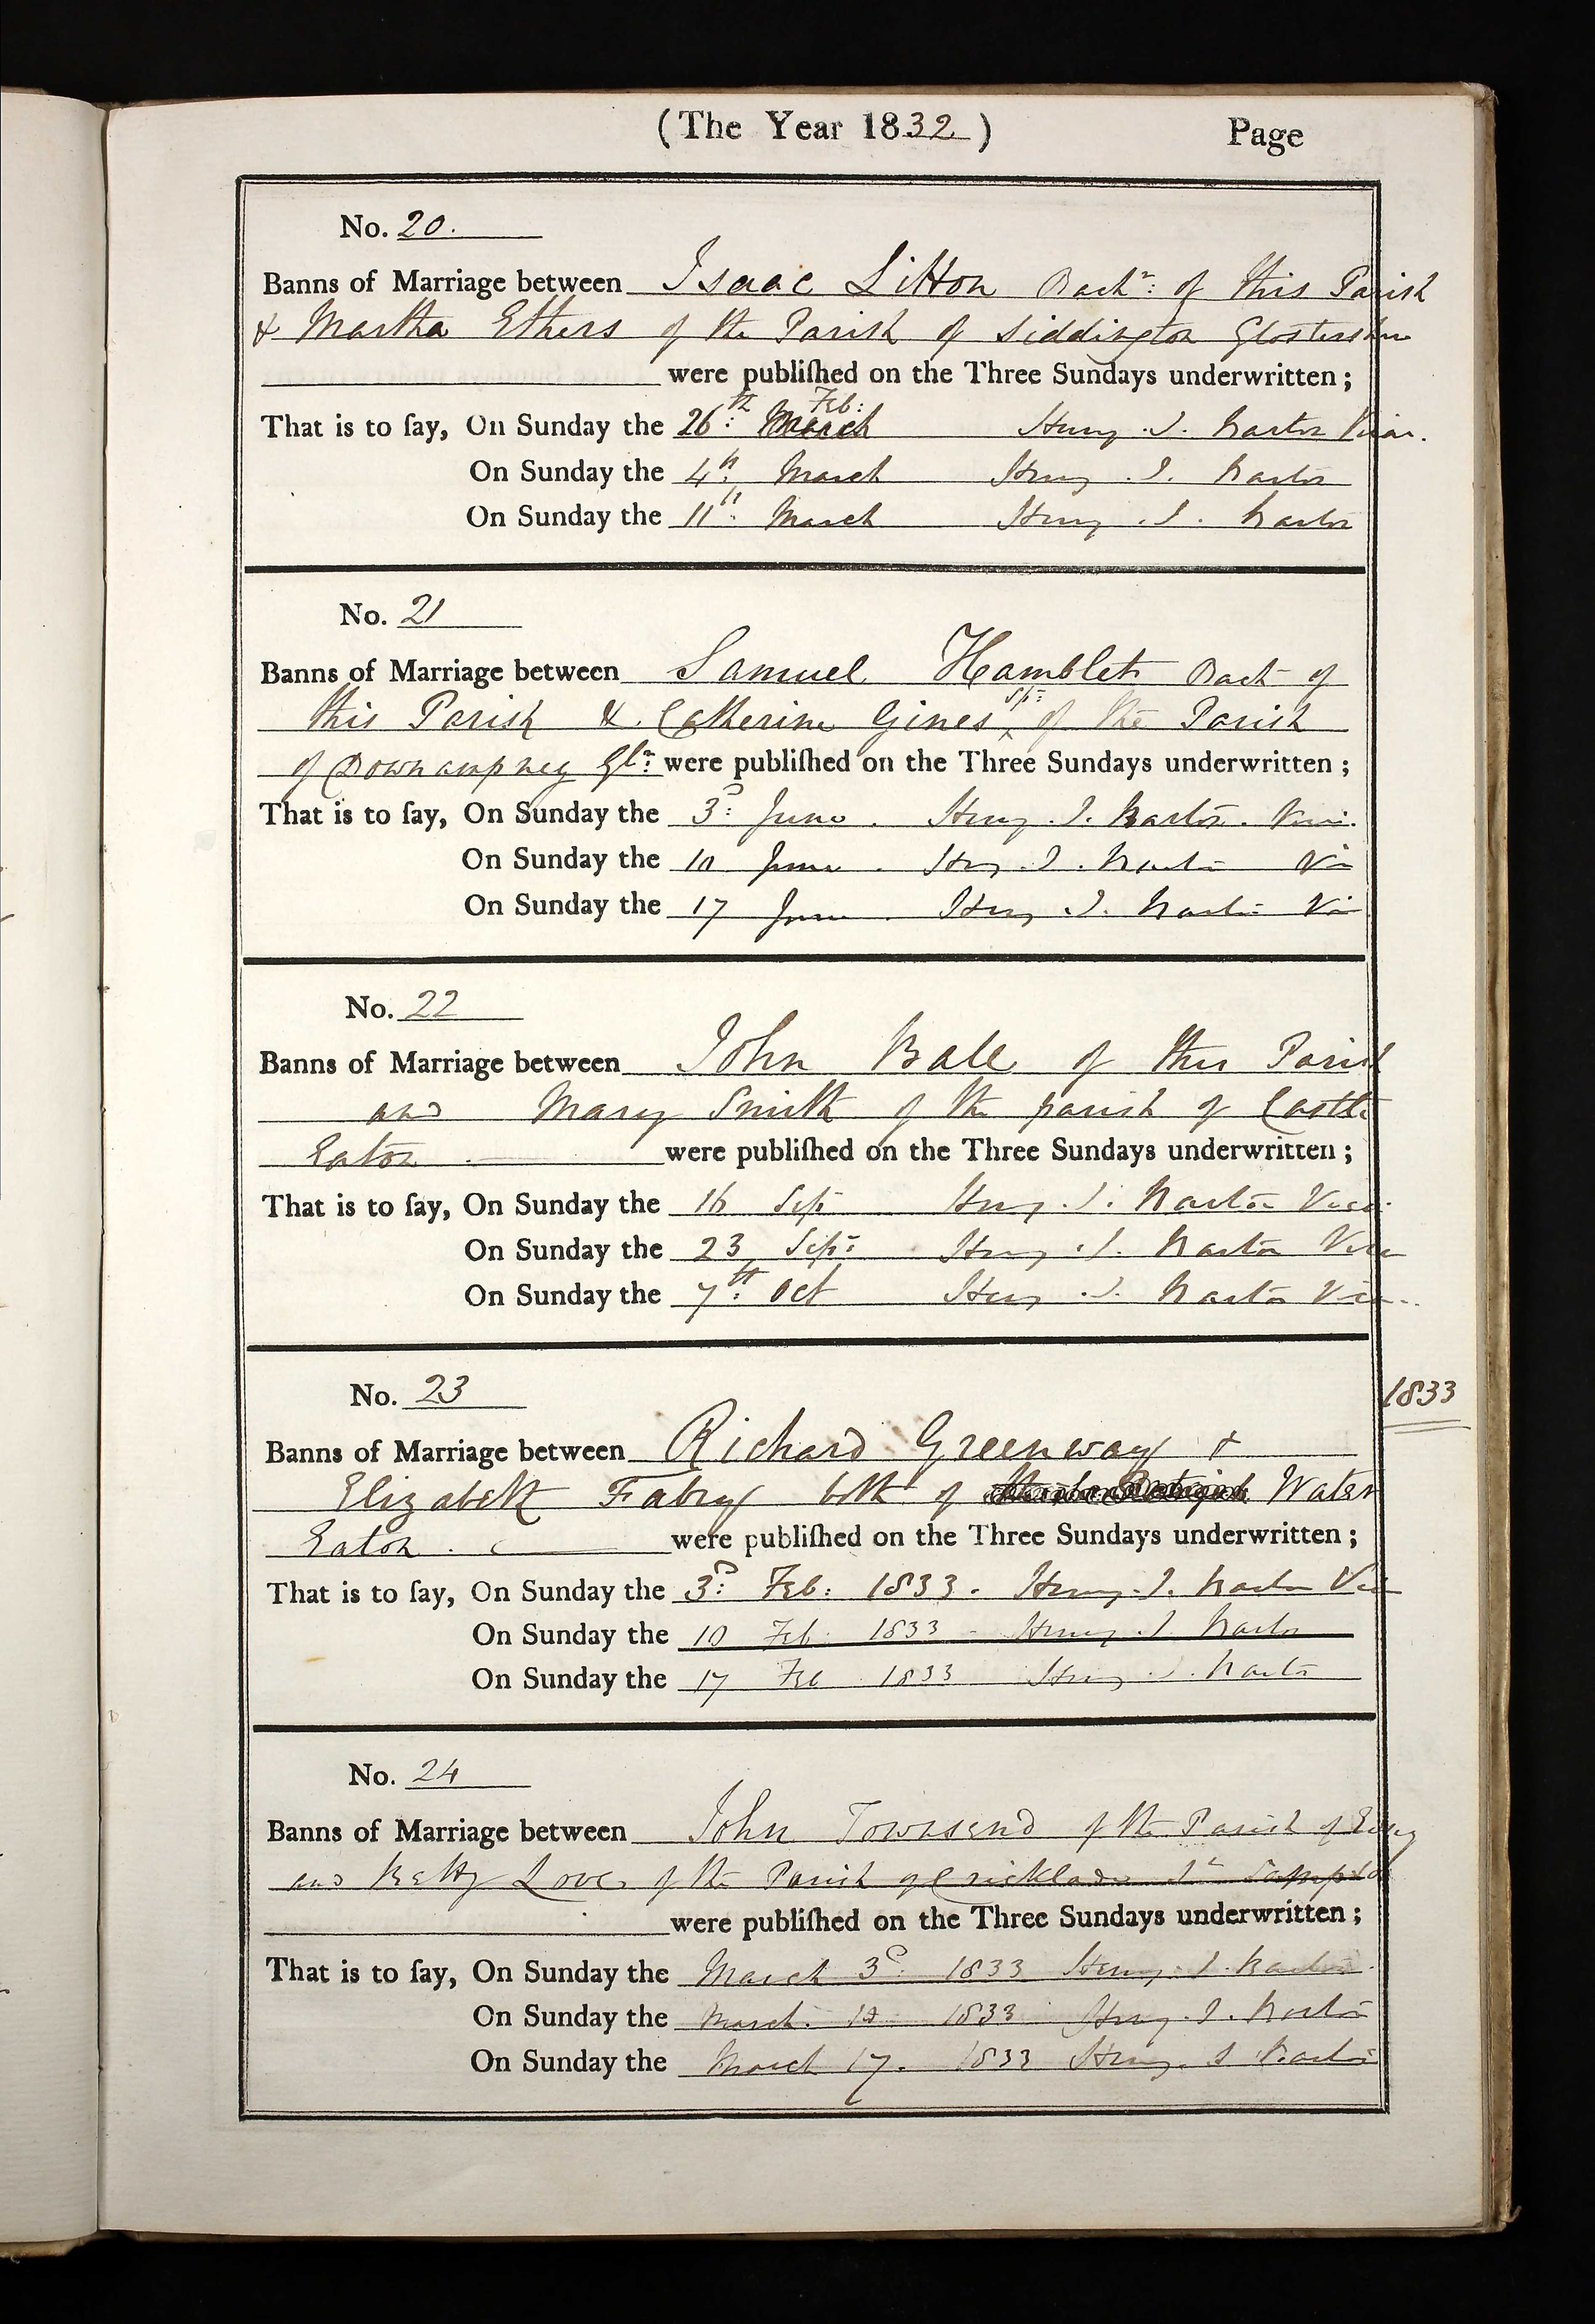 (The Year 1832) Page
No. 20.
Banns of Marriage between Isaac Litton Bachr: of this Parish
& Martha Ethers of the Parish of Siddington Glostershire
were publiſhed on the Three Sundays underwritten;
Feb:
That is to ſay, On Sunday the 26th: March Henry J. Barton Vicar.
On Sunday the 4th: March Henry J. Barton
On Sunday the 11th: March Henry J. Barton
No. 21
Banns of Marriage between Samuel Hamblet Bach of
this Parish & Catherine Gines Sp: of the Parish
of Downampney Glr: were publiſhed on the Three Sundays underwritten;
That is to ſay, On Sunday the 3d: June. Henry J. Barton. Vicar.
On Sunday the 10 June. Henry J. Barton Vic
On Sunday the 17 June. Henry J. Barton Vic
No. 22
Banns of Marriage between John Ball of this Parish
and Mary Smith of the parish of Castle
Eaton were publiſhed on the Three Sundays underwritten;
That is to ſay, On Sunday the 16 Sep Henry J. Barton Vicar
On Sunday the 23 Sep: Henry J. Barton Vicar
On Sunday the 7th: Oct Henry J. Barton Vicar
No. 23 1833
Banns of Marriage between Richard Greenway &
Elizabeth Fabry both of Water
Eaton. were publiſhed on the Three Sundays underwritten;
That is to ſay, On Sunday the 3d: Feb: 1833. Henry J. Barton Vic
On Sunday the 10 Feb. 1833 Henry J. Barton
On Sunday the 17 Feb 1833 Henry J. Barton
No. 24
Banns of Marriage between John Townsend of the Parish of
and Betty Love of the Parish of Cricklade St Sampson
were publiſhed on the Three Sundays underwritten;
That is to ſay, On Sunday the March 3d. 1833 Henry J. Barton.
On Sunday the March. 10 1833 Henry J. Barton
On Sunday the March 17. 1833 Henry J Barton